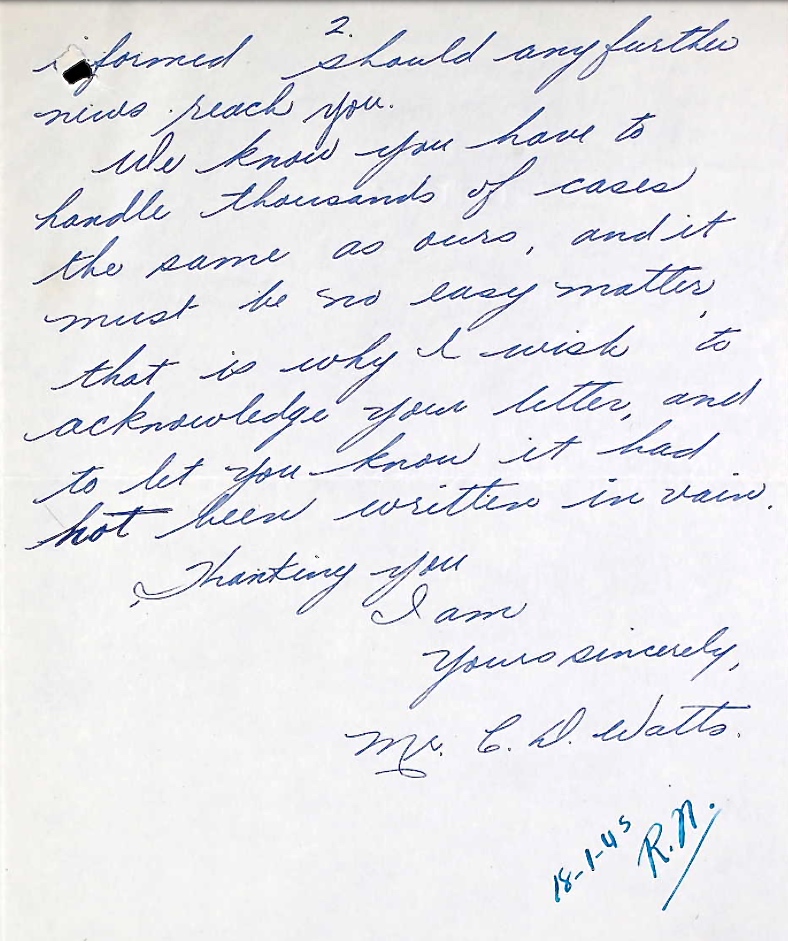 2.
informed should any further
news reach you.
We know you have to
handle thousands of cases
the same as ours, and it
must be no easy matter,
that is why I wish to
acknowledge your letter, and
to let you know it had
not been written in vain.
Thanking you
I am
Yours sincerely,
Mr. C. D. Watts.
18-1-45 R.N.